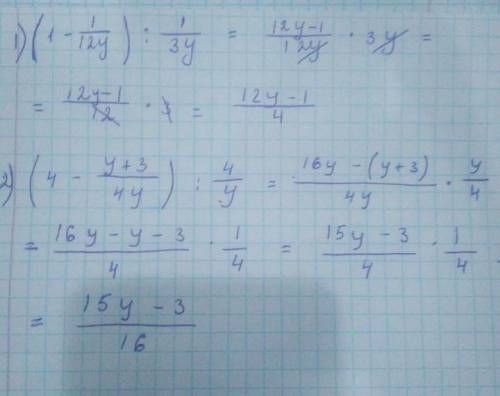 1) (1 - 1/12y) : 1/3y = 12y-1/12y · 3y =
= 12y-1/12 · 3 = 12y-1/4
2) (4 - y+3/4y) : 4/y = 16y-(y+3)/4y · y/4
= 16y-y-3/4 · 1/4 = 15y-3/4 · 1/4
= 15y-3/16